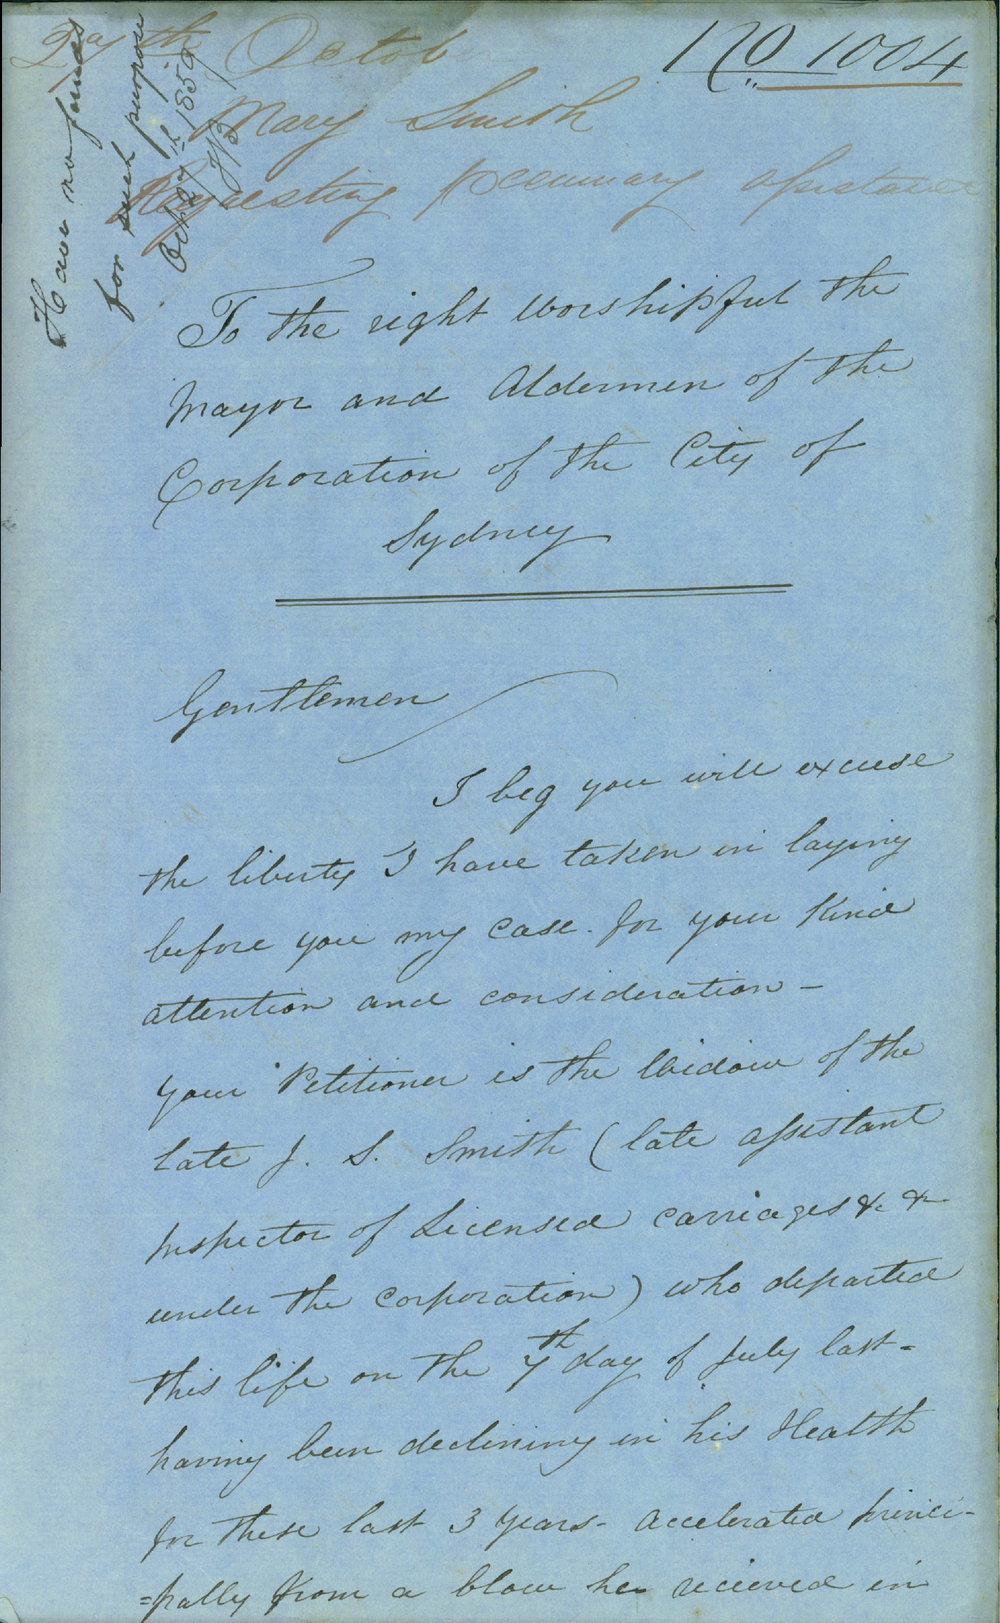 No 1004
27th Octob
Mary Smith
Requesting pecuniary assistance
Have no funds
for such purpose
Oct 27th 1859
To the right Worshipful the
Mayor and Aldermen of the
Corporation of the City of
Sydney
Gentlemen
I beg you will excuse
the liberty I have taken in laying
before you my case. for your Kind
attention and consideration -
your Petitioner is the Widow of the
late J. S. Smith (late assistant
Inspector of Licensed carriages &c &c
under the Corporation) who departed
this life on the 7th day of July last -
having been declining in his Health
for these last 3 years - accelerated princi-
=pally from a blow he recieved in